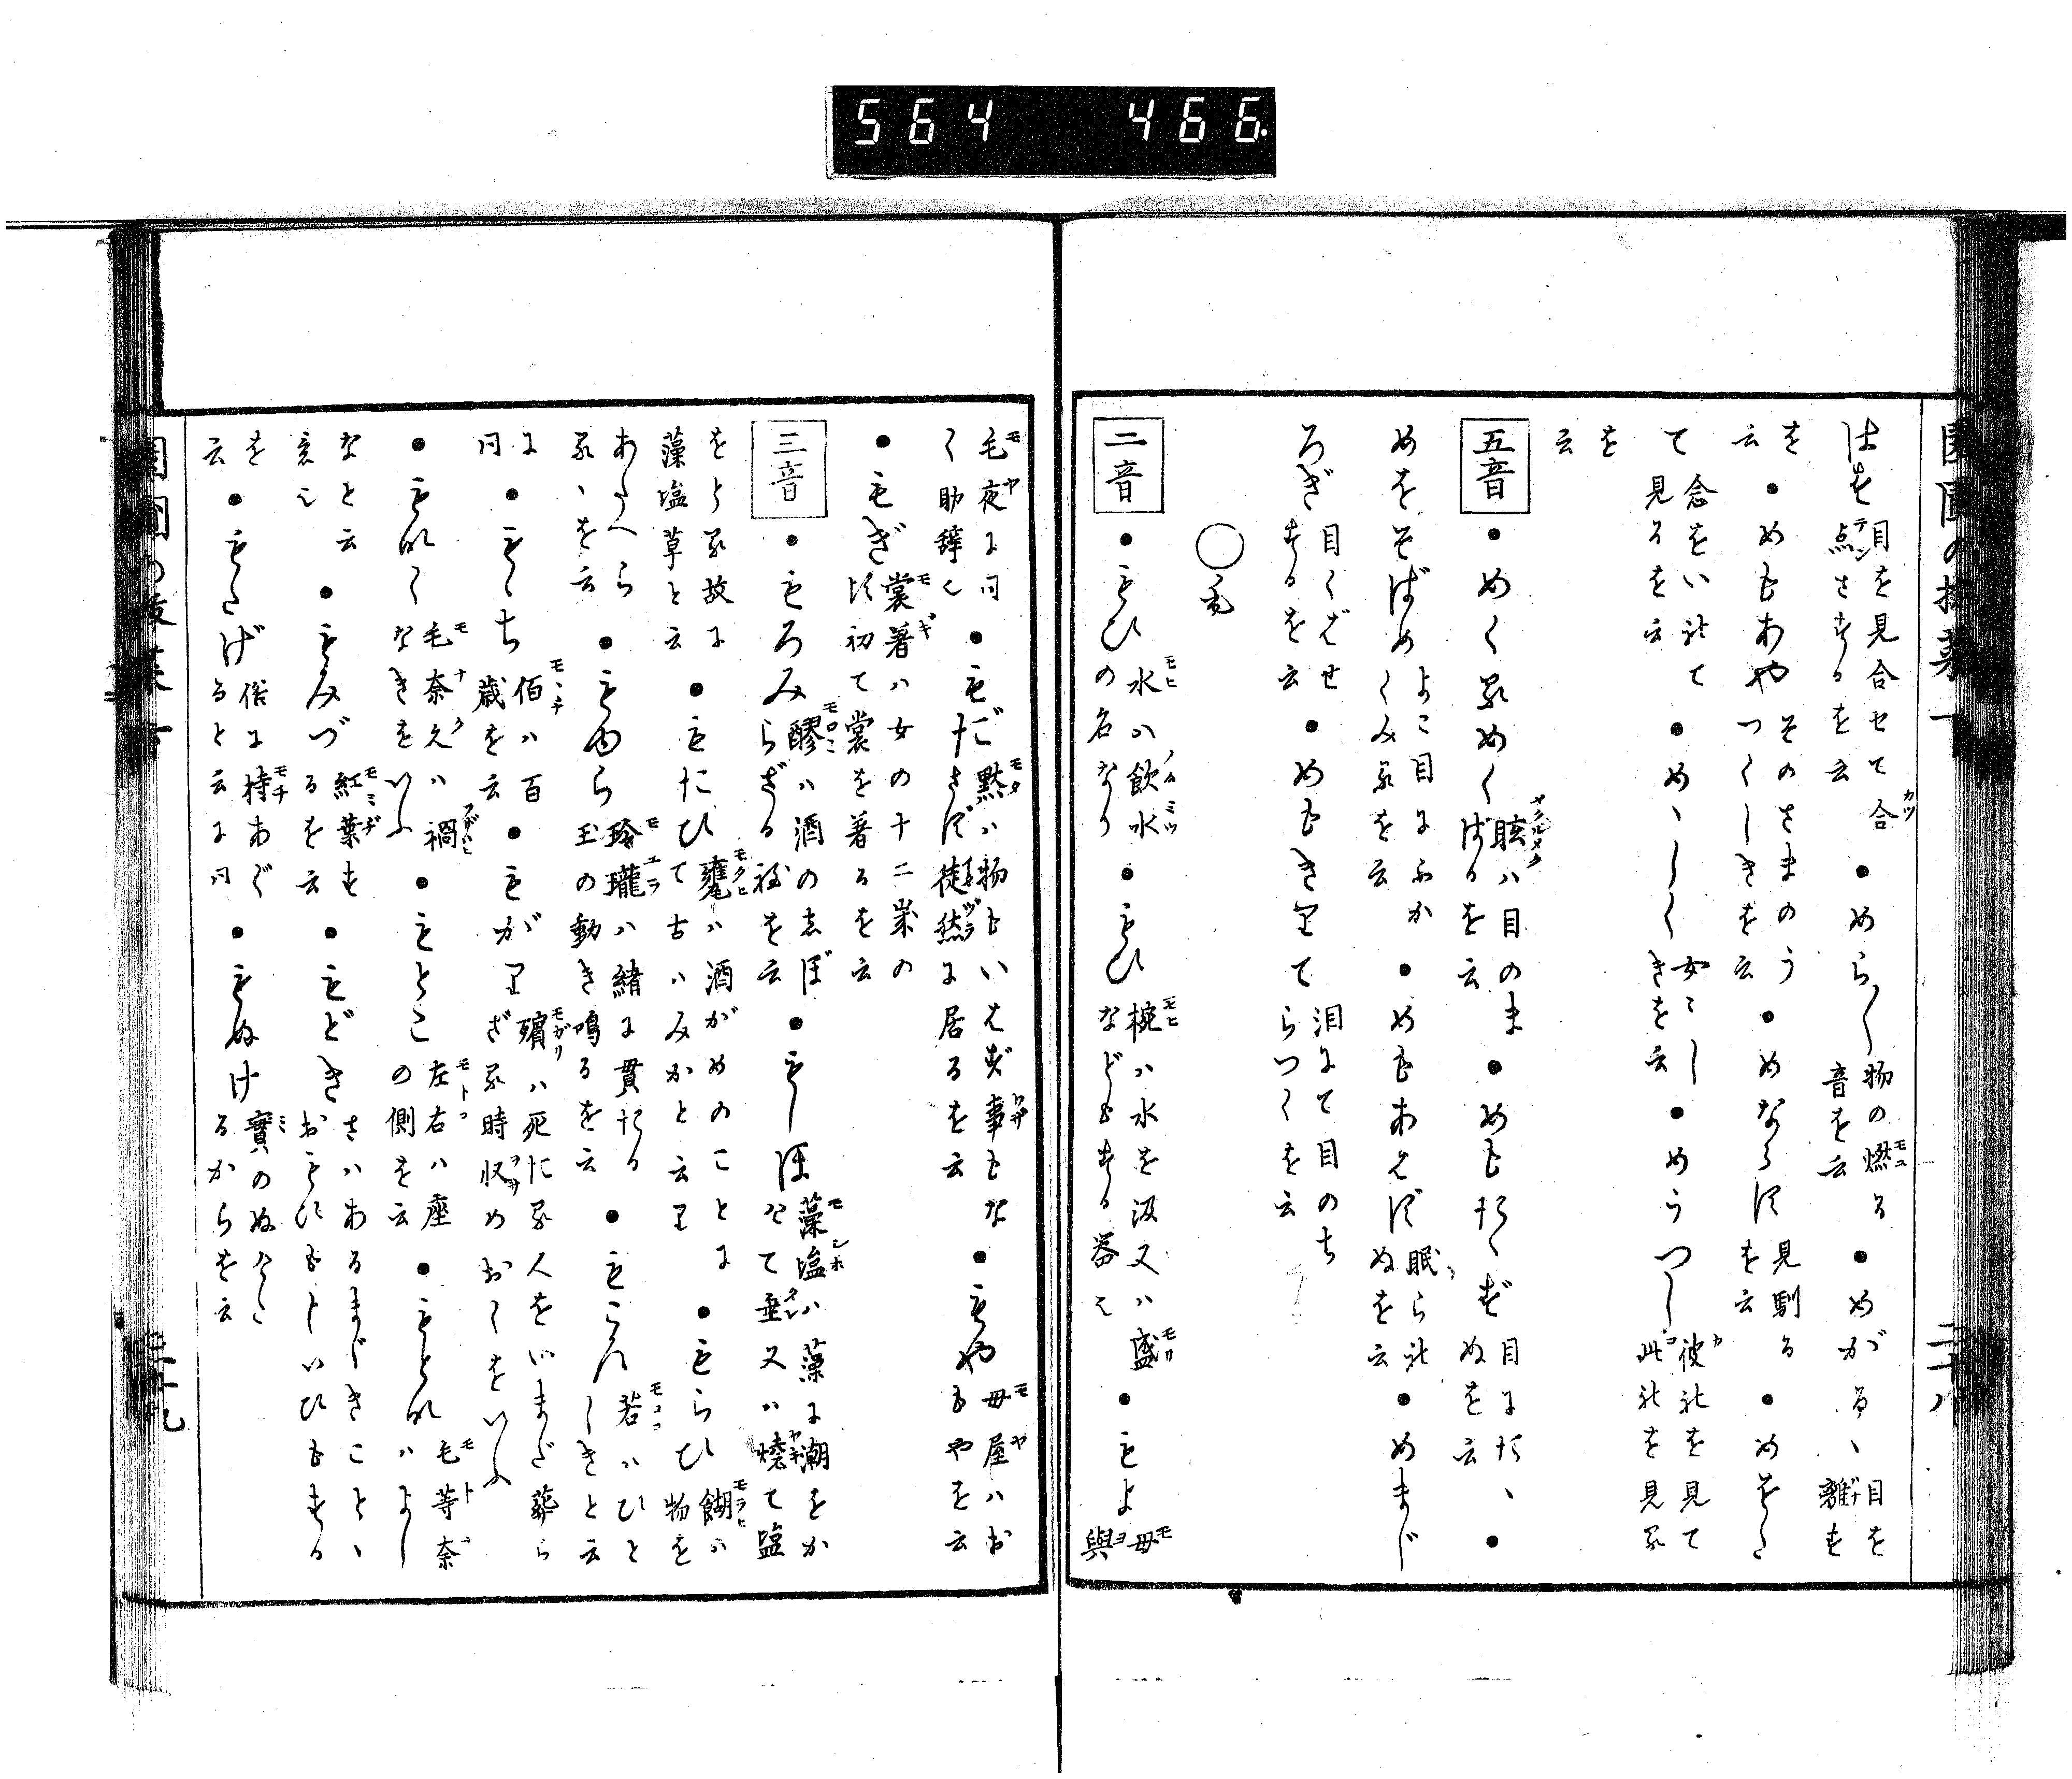 564 466
はす 目を見合セて合点さするを云 ●めら〳〵 物の燃る音を云 ●めがるゝ 目を離す
を云 ●めもあや そのさまのうつくしきを云 ●めならす 見馴るを云 ●めをた
て 念をい礼て見るを云 ●めゝしく 女こしきを云 ●めうつし 彼礼を見て此礼を見る
を云
五音 ●めくるめく 眩ハ目のまばるを云 ●めもたゝず 目にたゝぬを云 ●
めをそばめ よこ目にふかくみるを云 ●めもあはず 眠ら礼ぬを云 ●めまじ
ろぎ 目くばせするを云 ●めもきりて 泪にて目のちらつくを云
○毛
二音 ●もひ 水ハ飲水の名なり ●もひ 椀ハ水を汲又ハ盛などもする器也 ●もよ 母與
毛夜に同く助辞也 ●もだ 黙ハ物もいはず事もなさず徒然に居るを云 ●もや 母屋ハおもやを云
●もぎ 裳著ハ女の十二歳の比初て裳を著るを云
三音 ●もろみ 醪ハ酒のしぼらざる程を云 ●もしほ 藻塩ハ藻に潮をかけて垂又ハ焼て塩
をとる故に藻塩草と云 ●もたひ 甕ハ酒がめのことにて古ハみかと云り ●もらひ 餬ハ物を
あたへらるゝを云 ●もゆら 玲瓏ハ緒に貫たる玉の動き鳴るを云 ●もころ 若ハひとしきと云
に同 ●もゝち 佰ハ百歳を云 ●もがり 殯ハ死たる人をいまだ葬らざる時収めおくをいふ
●もなく 毛奈久ハ禍なきをいふ ●もとこ 左右ハ座の側を云 ●もとな 毛等奈ハよし
なと云意也 ●もみづ 紅葉するを云 ●もどき さハあるまじきことゝおもひもしいひもする
を云 ●もたげ 俗に持あぐると云に同 ●もぬけ 實のぬけたるからを云